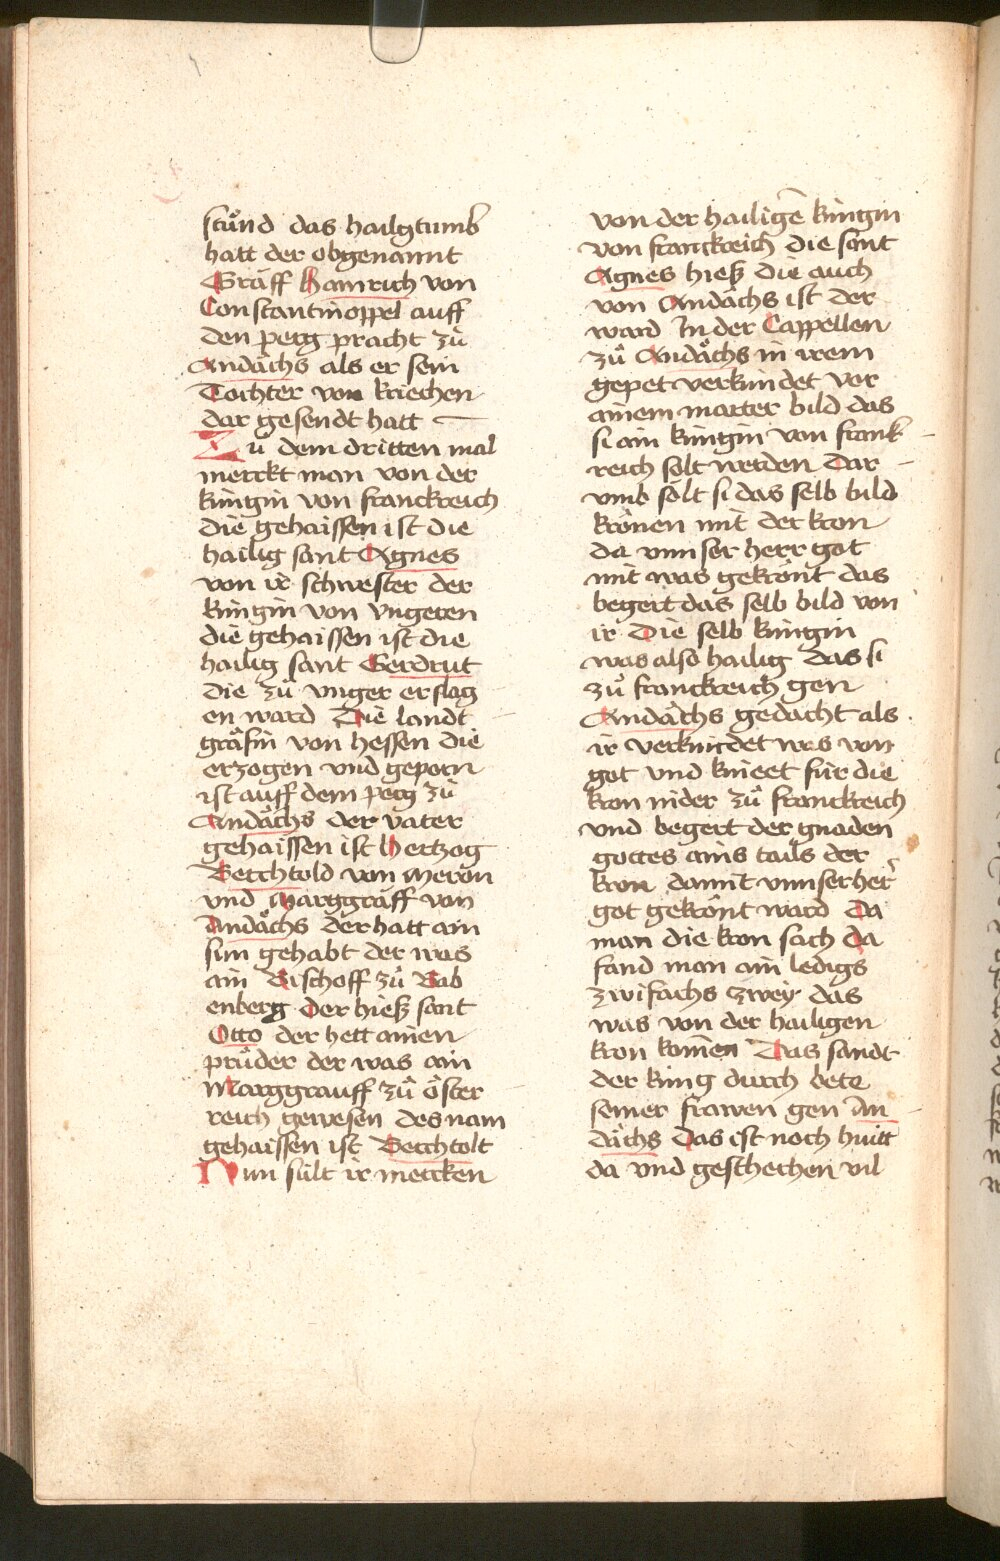 stuͦnd das hailgtumb
hatt der obgenannt
Gräff hainrich von
Constantinoppel auff
den perg pracht zuͦ
Andächs als er sein
Tochter von kriechen
dar gesendt hatt
Zuͦ dem dritten mal
merckt man von der
küngin von franckreich
die gehaissen ist die
hailig sant Agnes
von ir schwester der
küngin von vngeren
die gehaissen ist die
hailig sant Gerdrut
die zuͦ vnger erslag
en ward Die landt
gräfin von hessen die
erzogen vnd geporn
ist auff dem perg zuͦ
Andächs der vater
gehaissen ist hertzog
Berchtold von meron
vnd marggräff von
Andächs der hatt ain
sun gehabt der was
ain Bischoff zuͦ Bab
enberg Der hieß sant
Otto der hett ainen
pruͦder der was ain
Marggrauff zuͦ öster
reich gewesen des nam
gehaissen ist Berchtolt
Nun sült ir mercken
von der hailigē küngin
von franckreich die sant
Agnes hieß die auch
von Andächs ist der
ward In der Cappellen
zuͦ Andächs in irem
gepet verkündet vor
ainem marter bild das
si ain küngin von frank
reich solt werden Dar
vmb sölt si das selb bild
krönen mit der kron
da vnnser herr got
mit was gekrönt das
begert das selb bild von
ir Die selb küngin
was also hailig das si
zuͦ franckreich gen
Andächs gedacht als
ir verkündet was von
got vnd knieet für die
kron nider zuͦ franckreich
vnd begert der gnaden
gottes ains tails der
kron damit vnnser her
got gekrönt ward Da
man die kron sach da
fand man ain ledigs
zwifachs zwey das
was von der hailigen
kron komen Das sandt
der küng durch bete
seiner frawen gen An
dächs Das ist noch hüitt
da vnd geschechen vil